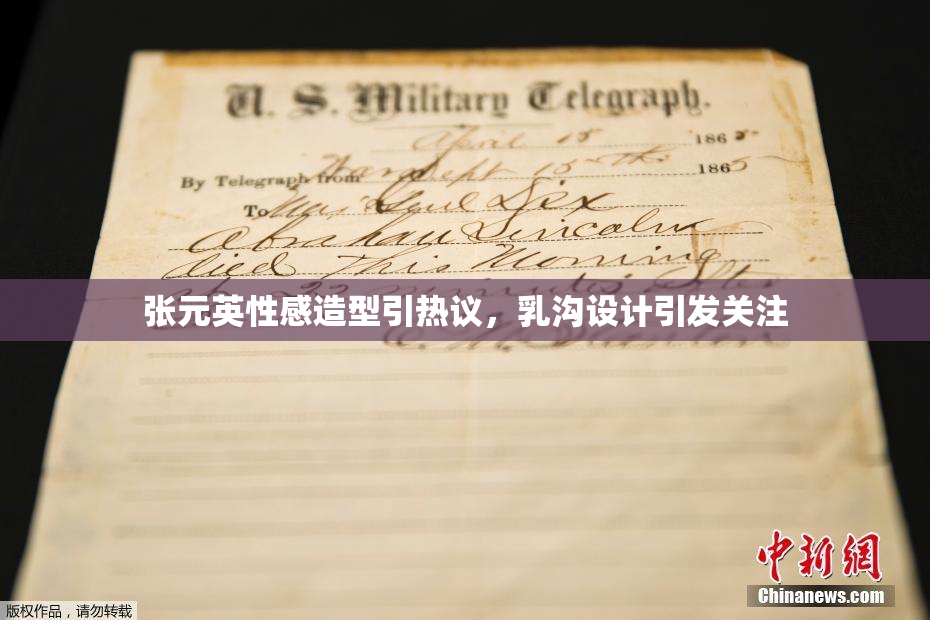 U. S. Military Telegraph.
April 15 1865
By Telegraph from War Dept 15th 1865
To Maj Genl Dix
Abraham Lincoln
died This Morning
at 22 minutes after
张元英性感造型引热议，乳沟设计引发关注
E. M. Stanton
中新网
Chinanews.com
版权作品，请勿转载